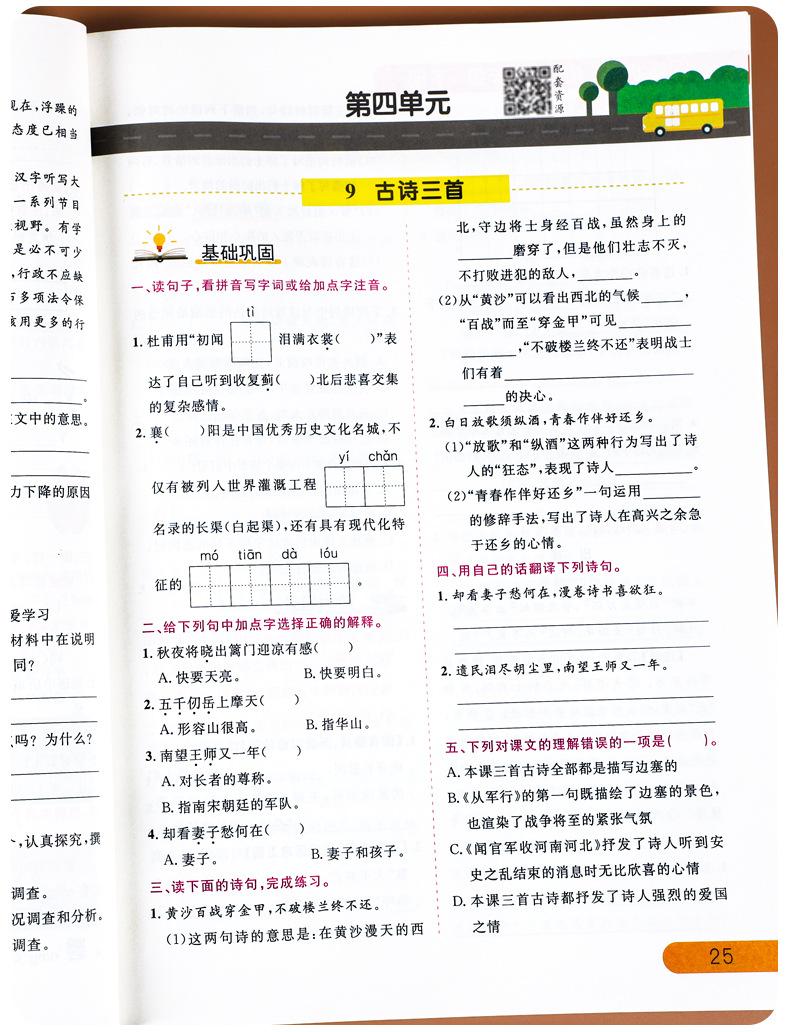 现在，浮躁的
态度已相当
汉字听写大
一系列节目
视野。有学
是必不可少
，行政不应缺
多项法令保
该用更多的行
。
文中的意思。
力下降的原因
爱学习
材料中在说明
同？
吗？为什么？
，认真探究，撰
调查。
况调查和分析。
调查。
第四单元
配套资源
9 古诗三首
基础巩固
一、读句子，看拼音写字词或给加点字注音。
tì
1.杜甫用“初闻 泪满衣裳( )”表
达了自己听到收复蓟( )北后悲喜交集
的复杂感情。
2.襄( )阳是中国优秀历史文化名城，不
yí chǎn
仅有被列入世界灌溉工程
名录的长渠(白起渠)，还有具有现代化特
mó tiān dà lóu
征的 。
二、给下列句中加点字选择正确的解释。
1.秋夜将晓出篱门迎凉有感( )
A.快要天亮。 B.快要明白。
2.五千仞岳上摩天( )
A.形容山很高。 B.指华山。
3.南望王师又一年( )
A.对长者的尊称。
B.指南宋朝廷的军队。
4.却看妻子愁何在( )
A.妻子。 B.妻子和孩子。
三、读下面的诗句，完成练习。
1.黄沙百战穿金甲，不破楼兰终不还。
(1)这两句诗的意思是：在黄沙漫天的西
北，守边将士身经百战，虽然身上的
______磨穿了，但是他们壮志不灭，
不打败进犯的敌人，______。
(2)从“黄沙”可以看出西北的气候_____，
“百战”而至“穿金甲”可见________
______，“不破楼兰终不还”表明战士
们有着____________________
_____的决心。
2.白日放歌须纵酒，青春作伴好还乡。
(1)“放歌”和“纵酒”这两种行为写出了诗
人的“狂态”，表现了诗人________。
(2)“青春作伴好还乡”一句运用______
的修辞手法，写出了诗人在高兴之余急
于还乡的心情。
四、用自己的话翻译下列诗句。
1.却看妻子愁何在，漫卷诗书喜欲狂。
2.遗民泪尽胡尘里，南望王师又一年。
五、下列对课文的理解错误的一项是( )。
A.本课三首古诗全部都是描写边塞的
B.《从军行》的第一句既描绘了边塞的景色，
也渲染了战争将至的紧张气氛
C.《闻官军收河南河北》抒发了诗人听到安
史之乱结束的消息时无比欣喜的心情
D.本课三首古诗都抒发了诗人强烈的爱国
之情
25